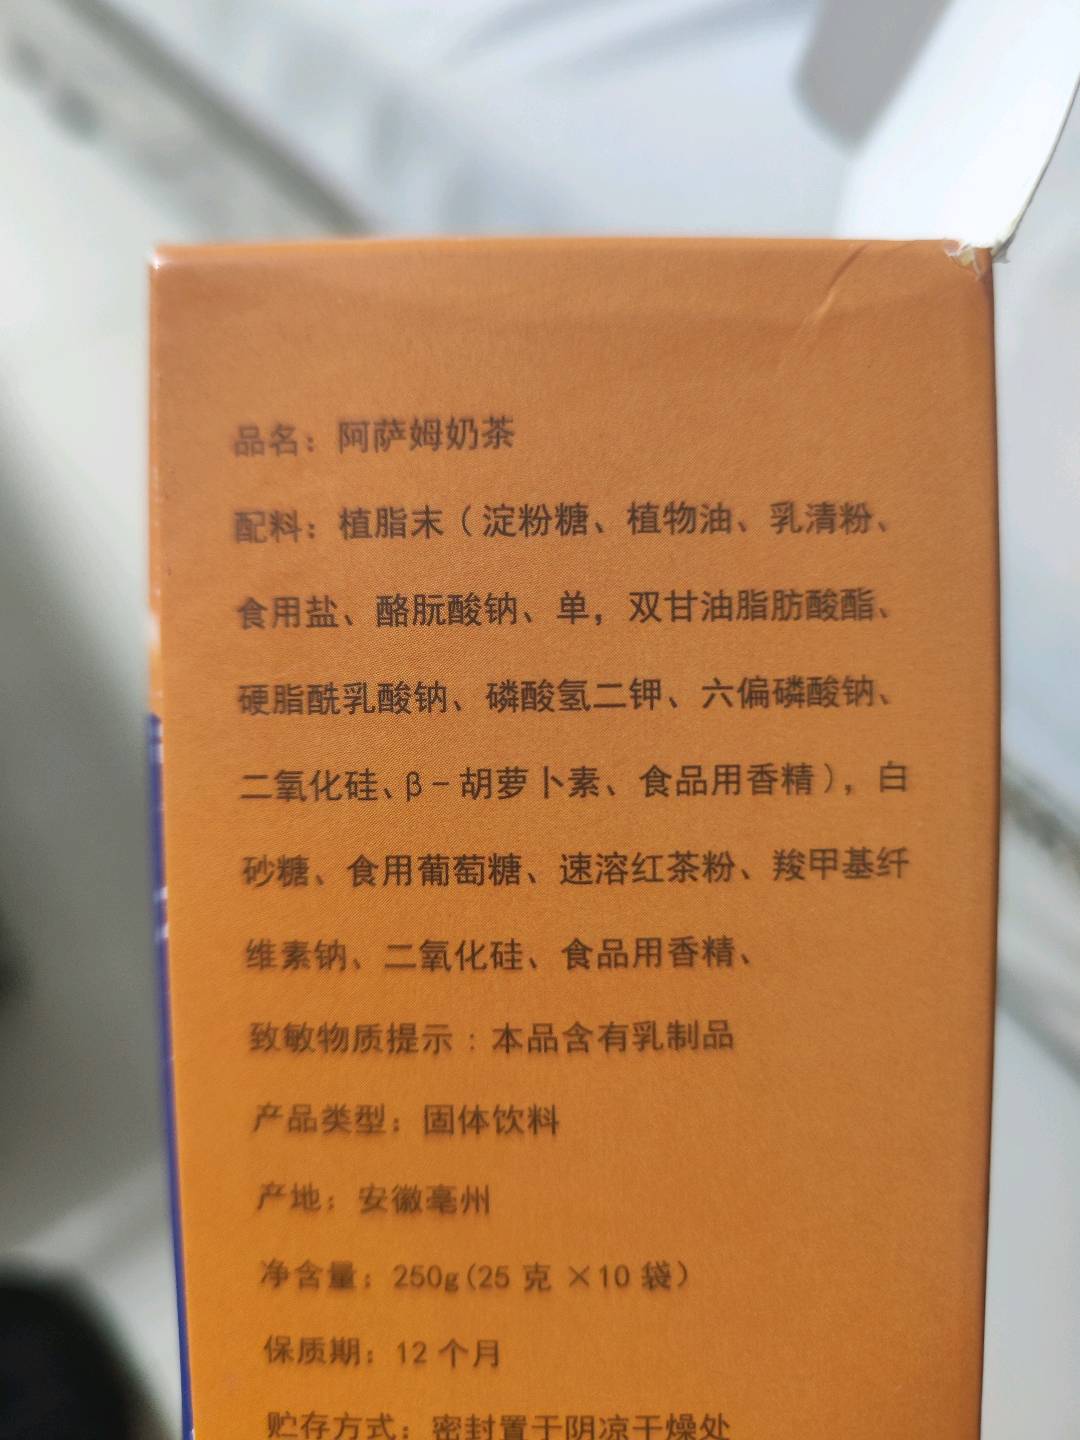 品名：阿萨姆奶茶
配料：植脂末（淀粉糖、植物油、乳清粉、
食用盐、酪朊酸钠、单，双甘油脂肪酸酯、
硬脂酰乳酸钠、磷酸氢二钾、六偏磷酸钠、
二氧化硅、β-胡萝卜素、食品用香精），白
砂糖、食用葡萄糖、速溶红茶粉、羧甲基纤
维素钠、二氧化硅、食品用香精、
致敏物质提示：本品含有乳制品
产品类型：固体饮料
产地：安徽亳州
净含量：250g(25 克 ×10 袋)
保质期：12 个月
贮存方式：密封置于阴凉干燥处